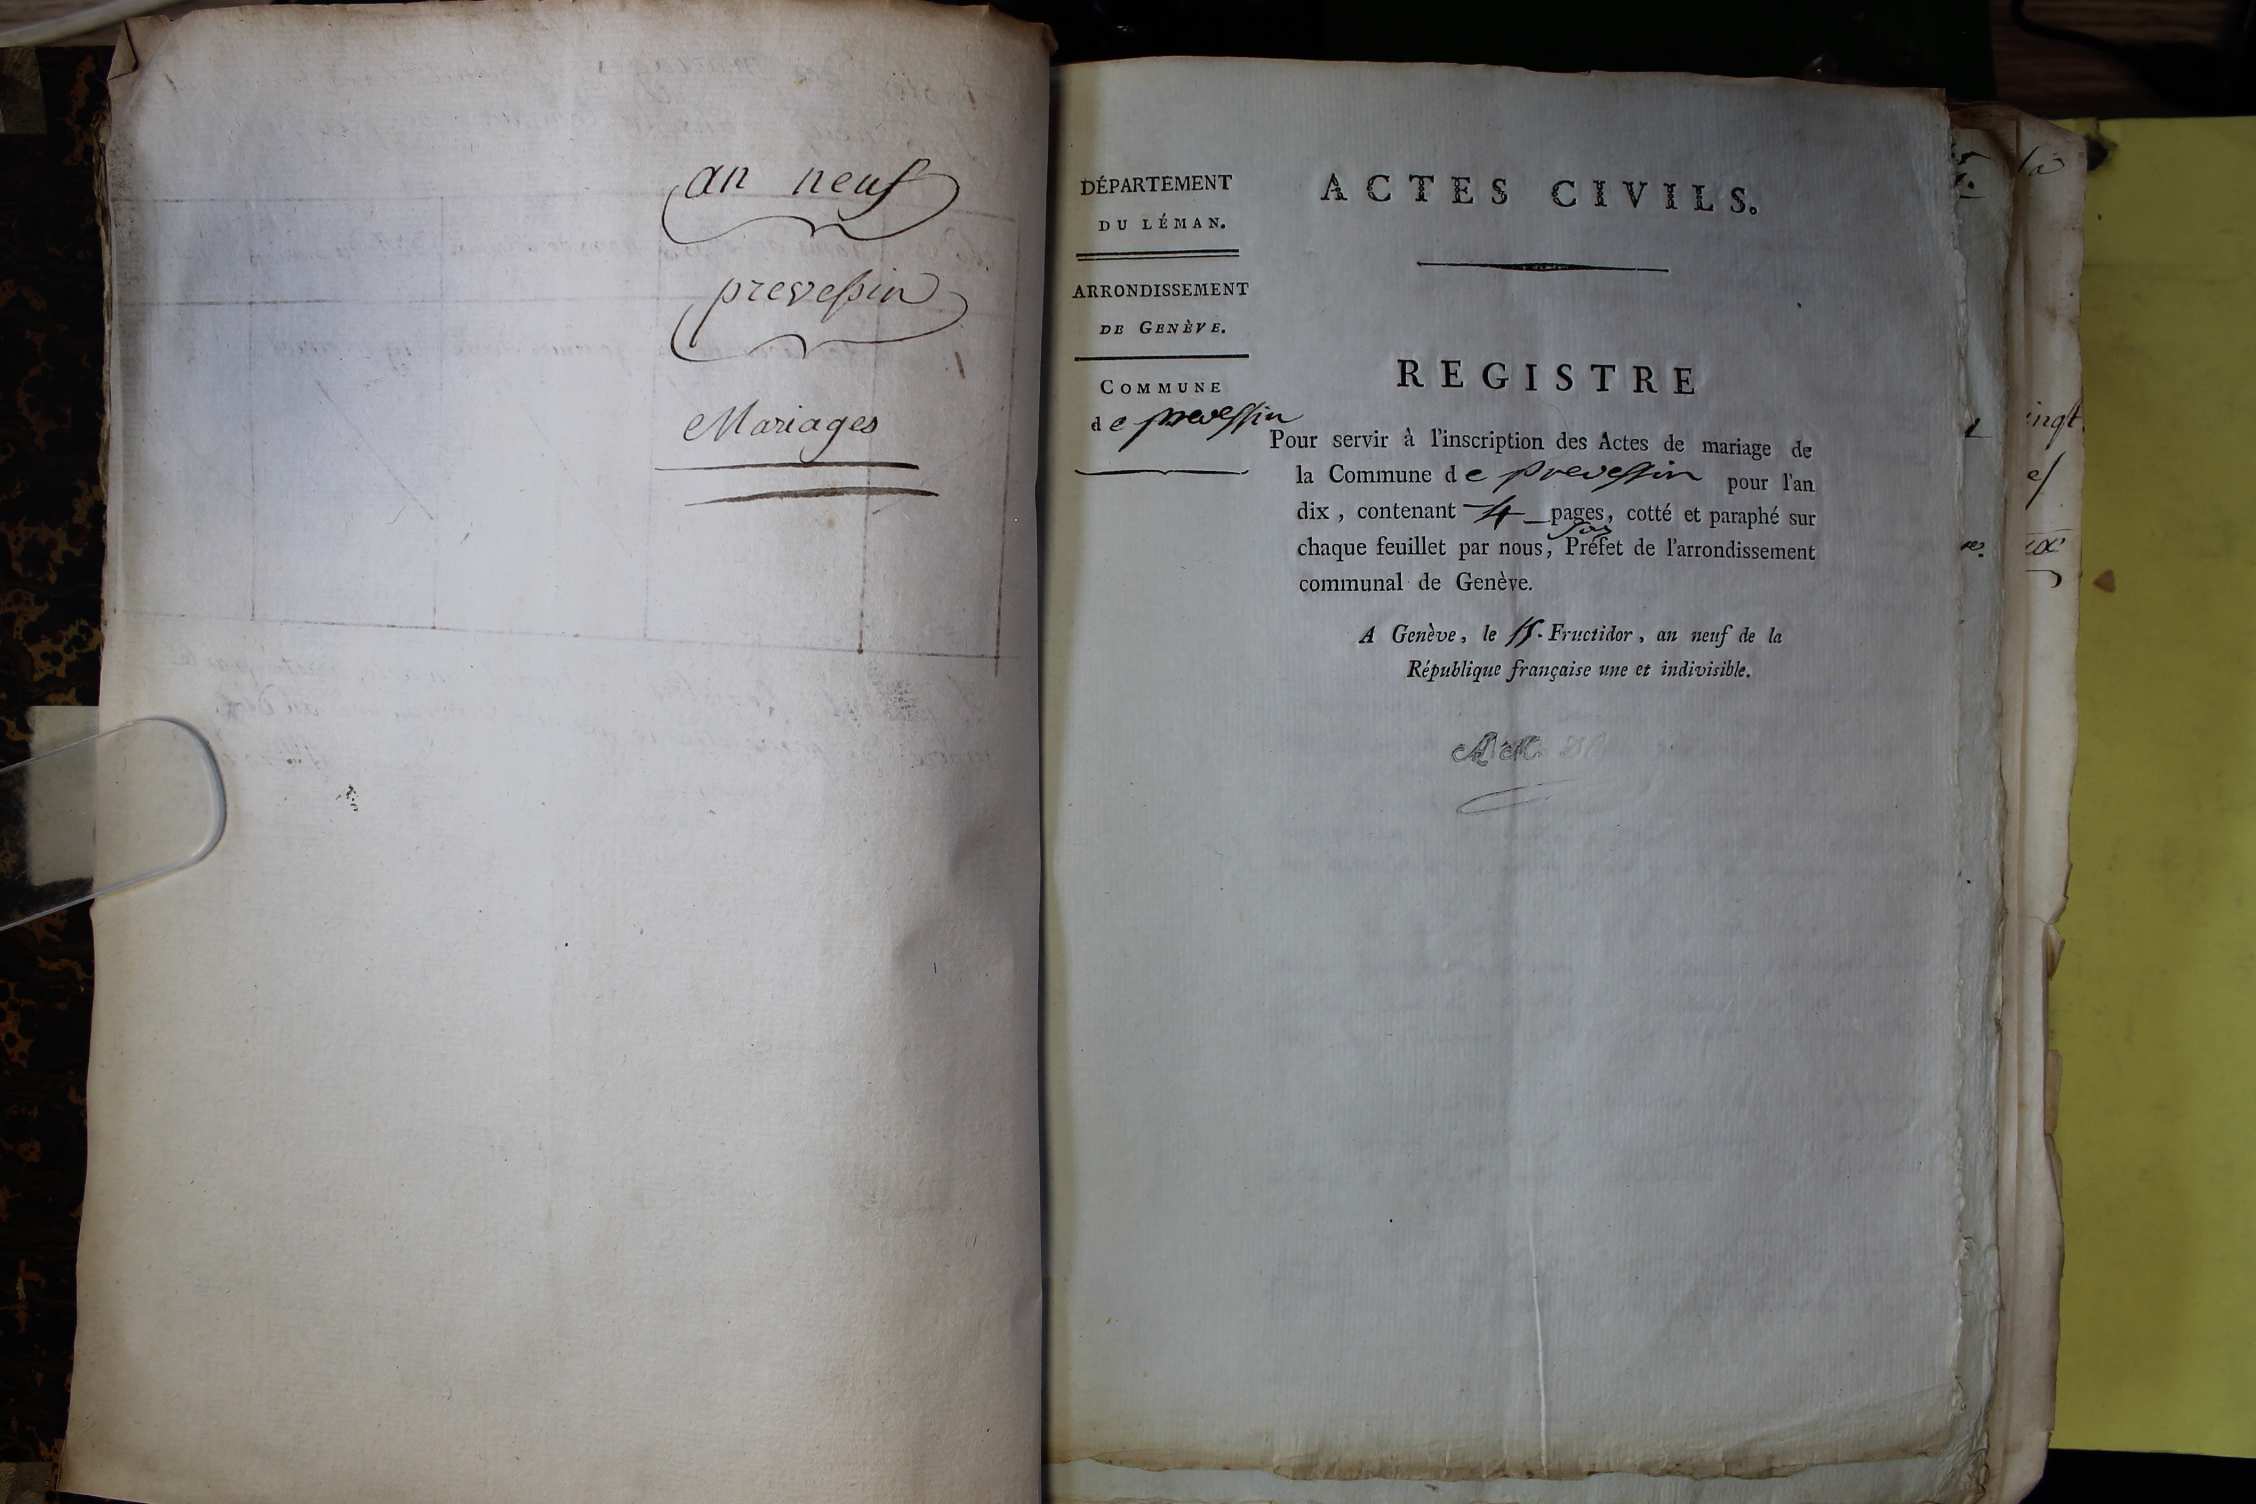 an neuf
prevessin
Mariages
DÉPARTEMENT
DU LÉMAN.
ARRONDISSEMENT
DE GENÈVE.
COMMUNE
de prevessin
ACTES CIVILS.
REGISTRE
Pour servir à l'inscription des Actes de mariage de
la Commune de prevessin pour l'an
dix, contenant 4 pages, cotté et paraphé sur
chaque feuillet par nous, Préfet de l'arrondissement
communal de Genève.
A Genève, le Fructidor, an neuf de la
République française une et indivisible.